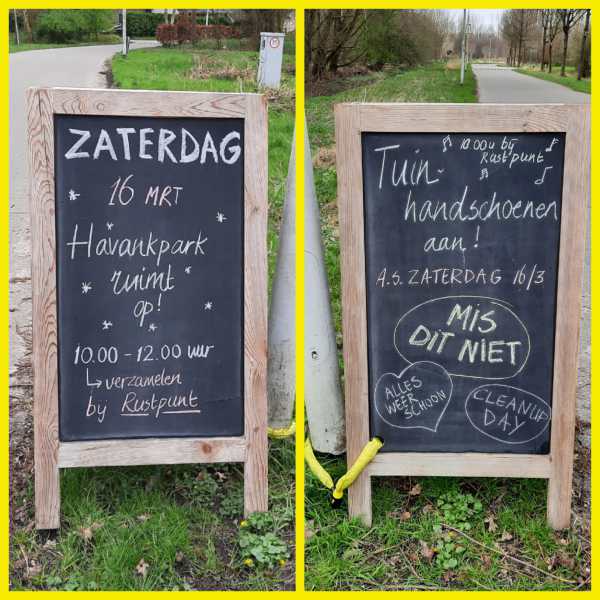 ZATERDAG
16 MRT
Havankpark
ruimt
op!
10.00 - 12.00 uur
verzamelen
bij Rustpunt
10.00u bij
Rustpunt
Tuin-
handschoenen
aan!
A.S. ZATERDAG 16/3
MIS
DIT NIET
ALLES
WEER
SCHOON
CLEANUP
DAY